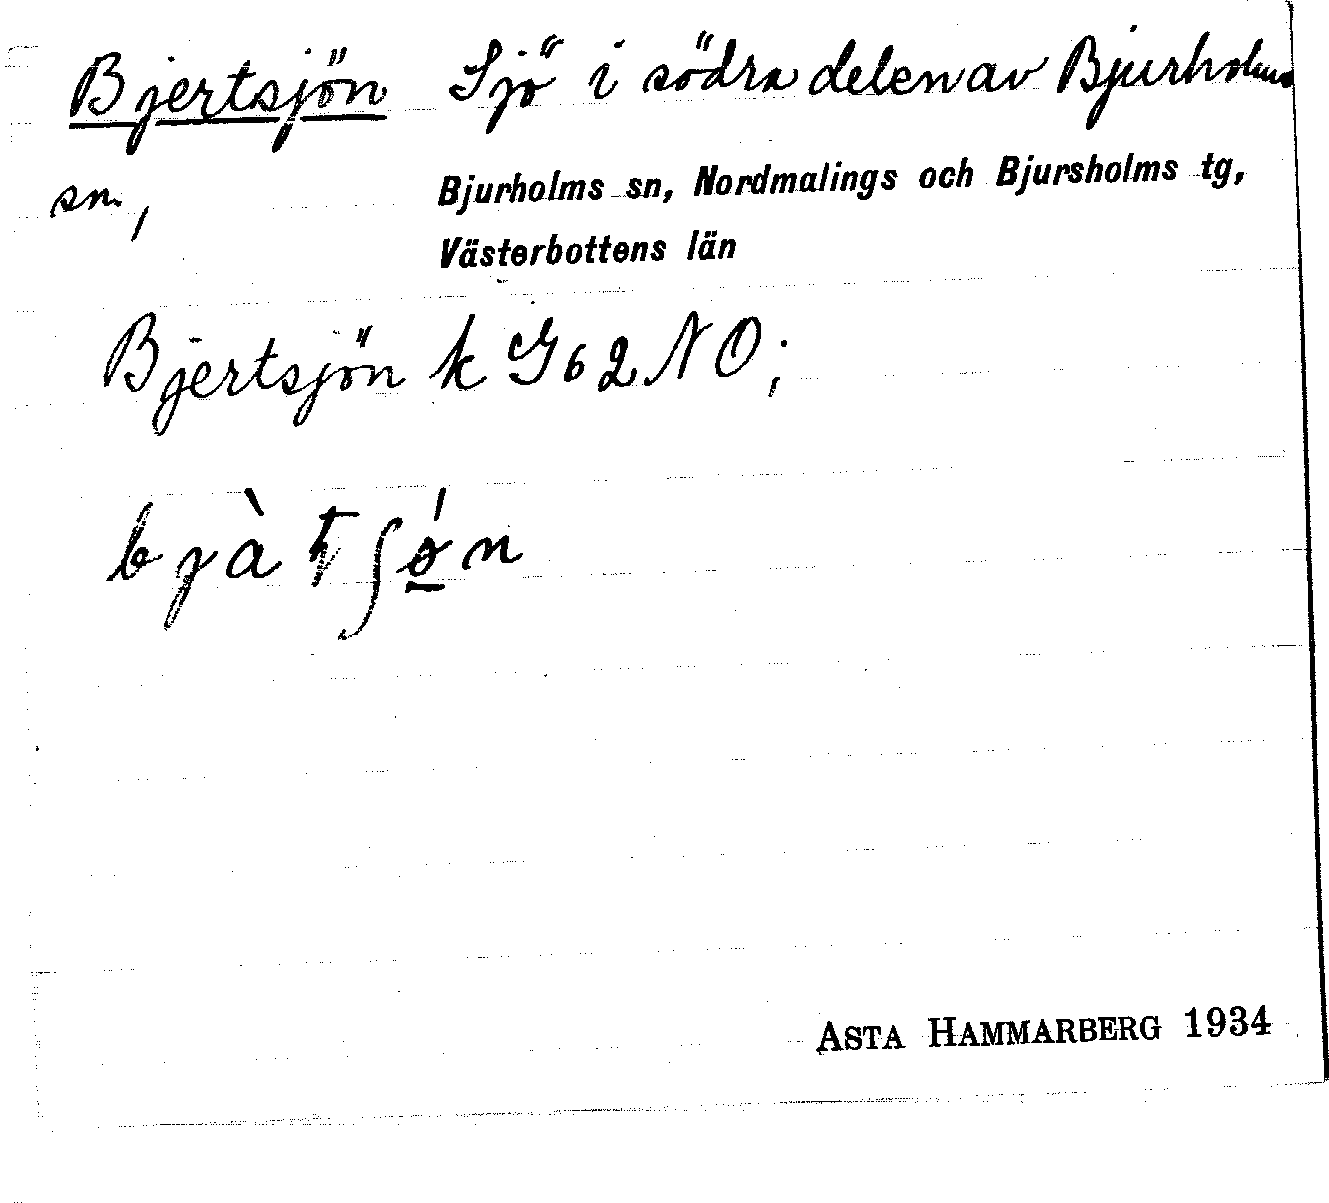 Bjertsjön Sjö i södra delen av Bjurholms
sn.,
Bjurholms sn, Nordmalings och Bjursholms tg,
Västerbottens län
Bjertsjön k G 62 NO;
ASTA HAMMARBERG 1934